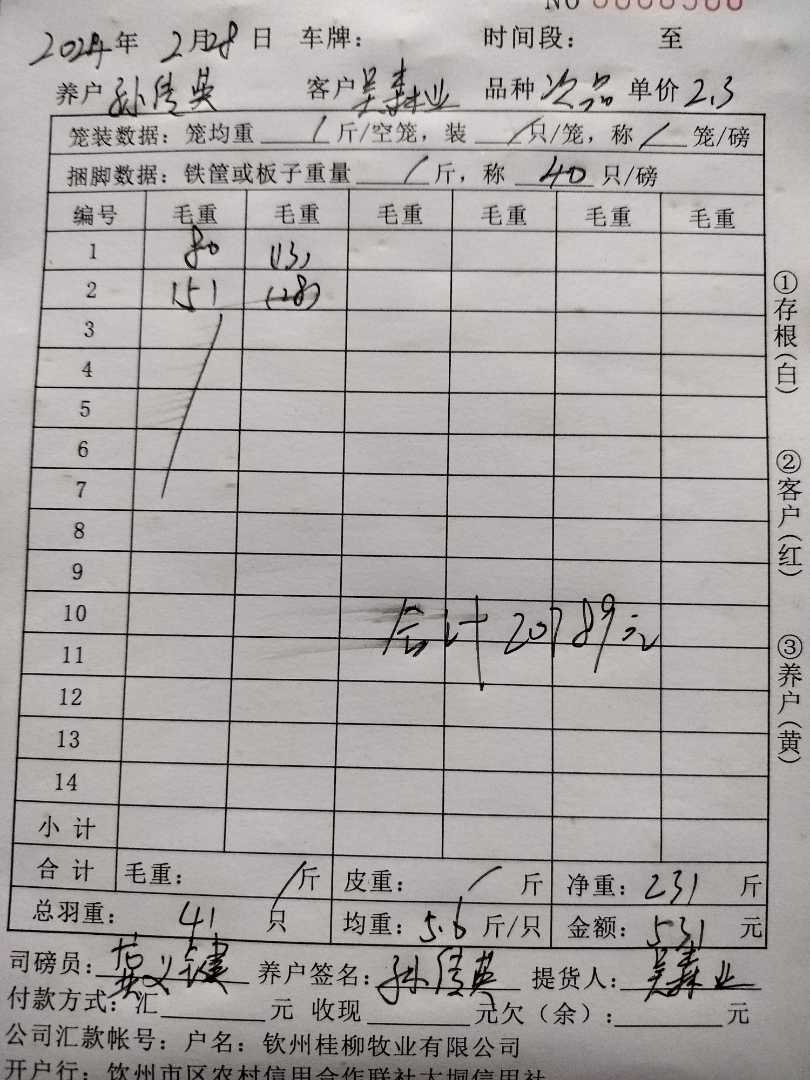 NO 0008500
2024年 2月28日 车牌： 时间段： 至
养户 孙传英 客户 吴森业 品种 次品 单价 2.3
笼装数据：笼均重 / 斤/空笼，装 / 只/笼，称 / 笼/磅
捆脚数据：铁筐或板子重量 / 斤，称 40 只/磅
编号 毛重 毛重 毛重 毛重 毛重 毛重
1 80
2 151
3
4
5
6
7
8
9
10
合计 20789元
11
12
13
14
小计
合计 毛重： / 斤 皮重： / 斤 净重：231 斤
总羽重： 41 只 均重：5.6 斤/只 金额：531 元
司磅员： 养户签名：孙传英 提货人：吴森业
付款方式：汇 元 收现 元欠（余）： 元
公司汇款帐号：户名：钦州桂柳牧业有限公司
开户行：钦州市区农村信用合作联社大垌信用社
①存根（白）
②客户（红）
③养户（黄）